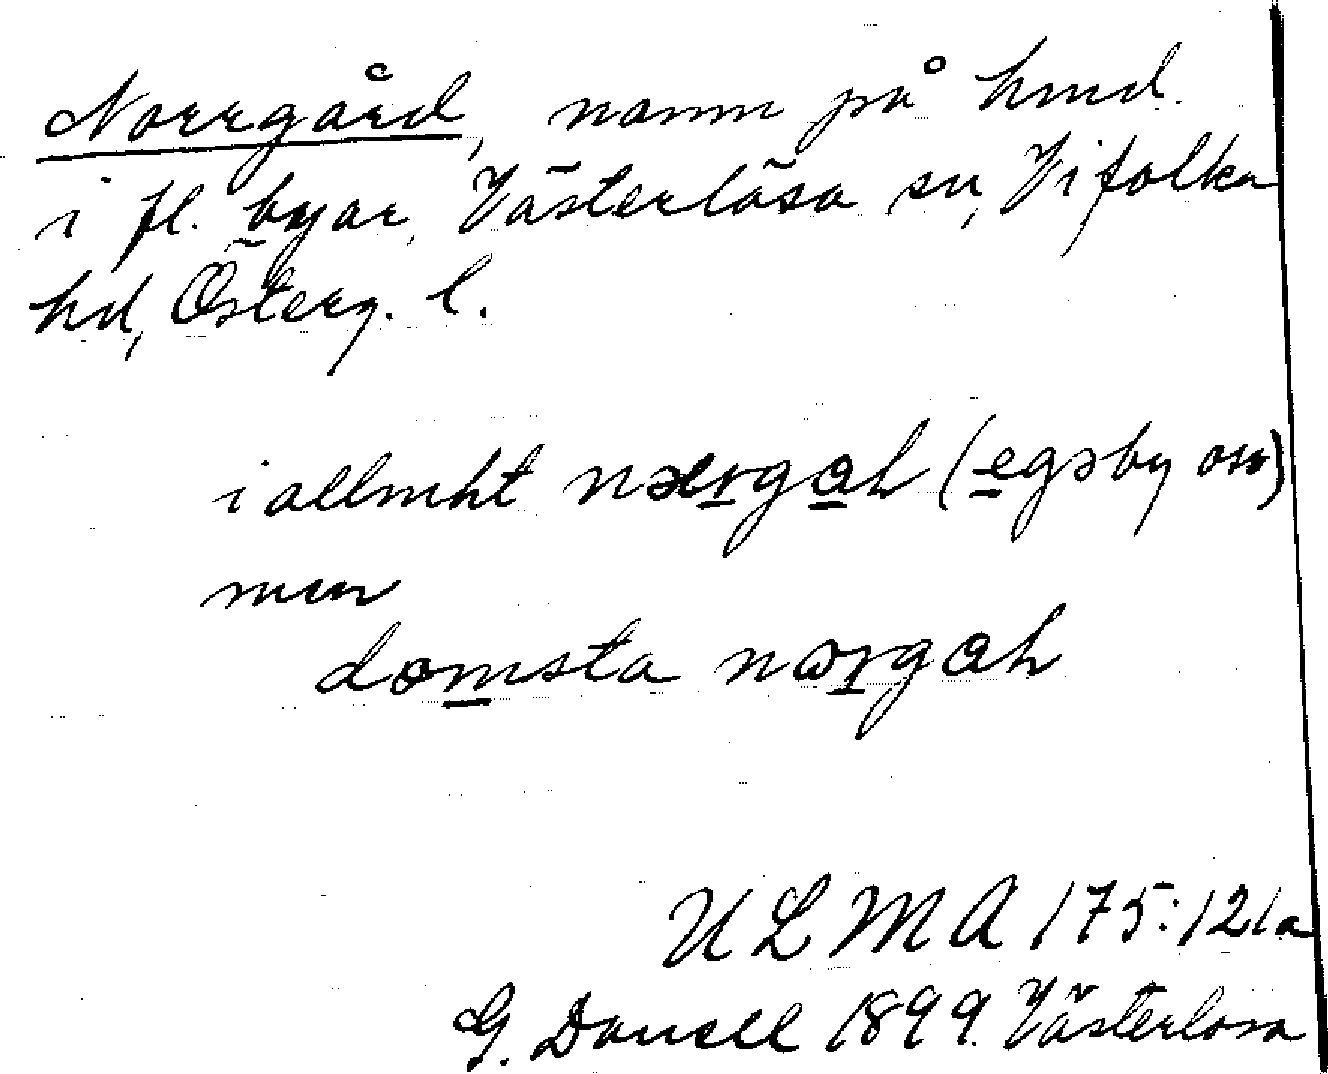 Norrgård, namn på hmd.
i fl. byar, Västerlösa sn, Vifolka
hd, Österg. l.
i allmht nærgaɦ (egsby osv)
men
domsta nωrgaɦ
ULMA 175:121a
G. Danell 1899. Västerlösa